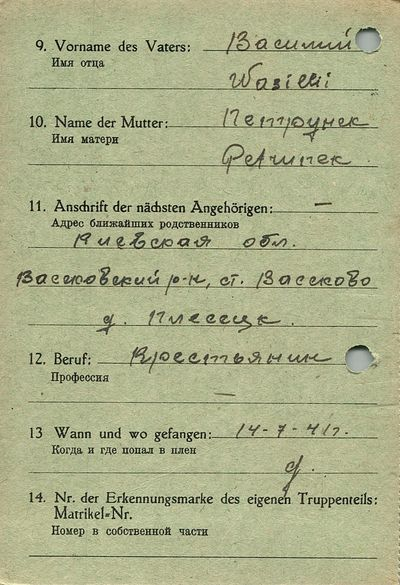 9. Vorname des Vaters: Василий
Имя отца
Wasilli
10. Name der Mutter: Петрунек
Имя матери
11. Anschrift der nächsten Angehörigen: —
Адрес ближайших родственников
Киевская обл.
Васековский р-н, ст. Васеково
д. Плесецк.
12. Beruf: Крестьянин
Профессия —
13 Wann und wo gefangen: 14-7-41г.
Когда и где попал в плен
д.
14. Nr. der Erkennungsmarke des eigenen Truppenteils:
Matrikel=Nr.
Номер в собственной части